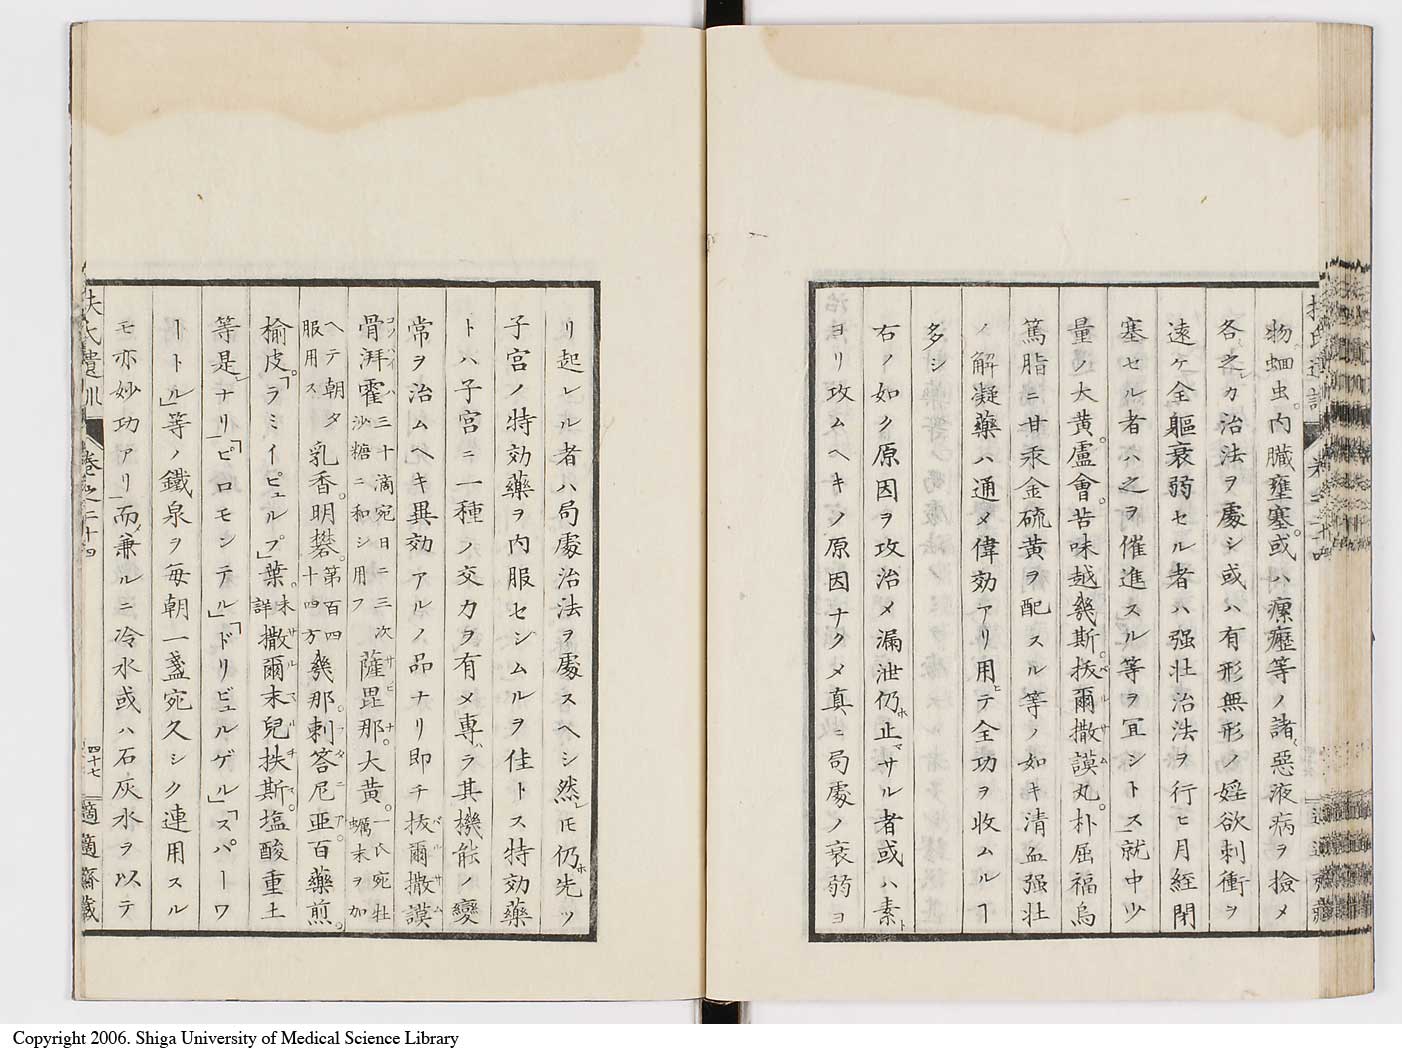 物蛔虫。内臓壅塞。或ハ瘰癧等ノ諸惡液病ヲ撿メ
各之カ治法ヲ處シ或ハ有形無形ノ婬欲刺衝ヲ
遠ケ全軀衰弱セル者ハ强壮治法ヲ行ヒ月經閉
塞セル者ハ之ヲ催進スル等ヲ冝シトス」就中少
量ノ大黄。盧會。苦味越幾斯。抜爾撒謨丸。朴屈福烏
篤脂ニ甘汞金硫黄ヲ配スル等ノ如キ清血强壮
ノ解凝藥ハ通メ偉効アリ用ヒテ全功ヲ收ムルヿ
多シ
右ノ如ク原因ヲ攻治メ漏泄仍ホ止マサル者或ハ素ト
ヨリ攻ムヘキノ原因ナクメ真ニ局處ノ衰弱ヨ
リ起レル者ハ局處治法ヲ處スヘシ然レ𪜈仍ホ先ツ
子宮ノ特効藥ヲ内服セシムルヲ佳トス特効藥
トハ子宮ニ一種ノ交力ヲ有メ專ハラ其機能ノ變
常ヲ治ムヘキ異効アルノ品ナリ即チ抜爾撒謨
骨湃霍三十滴宛日ニ三次沙糖ニ和シ用フ薩毘那。大黄。一氏宛牡蠣末ヲ加
ヘテ朝夕服用ス乳香。明礬。第百四十四方幾那。剌答尼亜。百藥煎。
榆皮。「ラミイピュルプ」葉。未詳撒爾末兒扶斯。塩酸重土
等是レナリ」「ピロモンテル」「ドリビュルゲル」「スパーワ
ートル」等ノ鐵泉ヲ毎朝一盞宛久シク連用スル
モ亦妙功アリ」而メ兼ルニ冷水或ハ石灰水ヲ以テ
扶氏遺訓
巻之二十四
四十七
適適齋藏
Copyright 2006. Shiga University of Medical Science Library